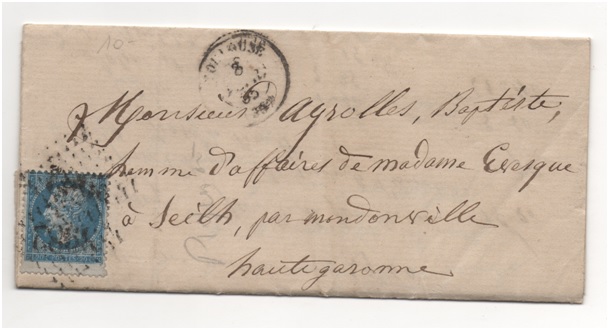 10-
TOULOUSE
Monsieur Ayrolles, Baptiste,
homme d'affaires de madame Evesque
à Seilh, par mondonville
haute garonne